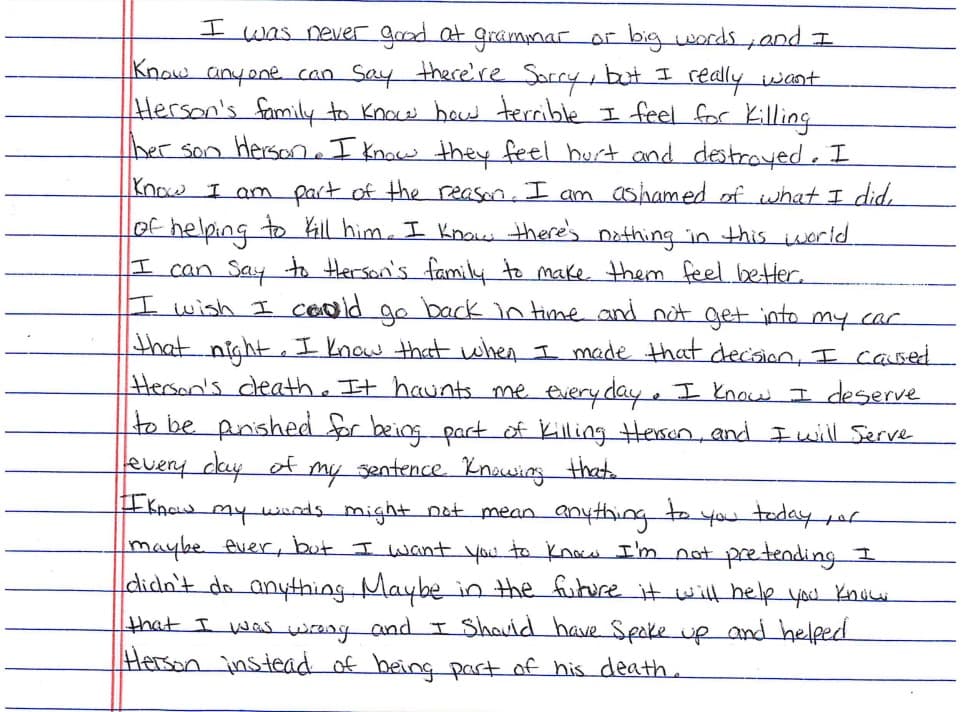 I was never good at grammar or big words, and I
Know anyone can Say there're Sorry, but I really want
Herson's family to Know how terrible I feel for Killing
her son Herson. I Know they feel hurt and destroyed. I
Know I am part of the reason. I am ashamed of what I did,
of helping to Kill him. I Know there's nothing in this world
I can Say to Herson's family to make them feel better.
I wish I could go back in time and not get into my car
that night. I Know that when I made that decision, I caused
Herson's death. It haunts me everyday. I Know I deserve
to be punished for being part of Killing Herson, and I will Serve
every day of my sentence Knowing that.
I Know my words might not mean anything to you today, or
maybe ever, but I want you to Know I'm not pretending I
didn't do anything. Maybe in the future it will help you Know
that I was wrong and I Should have Spoke up and helped
Herson instead of being part of his death.